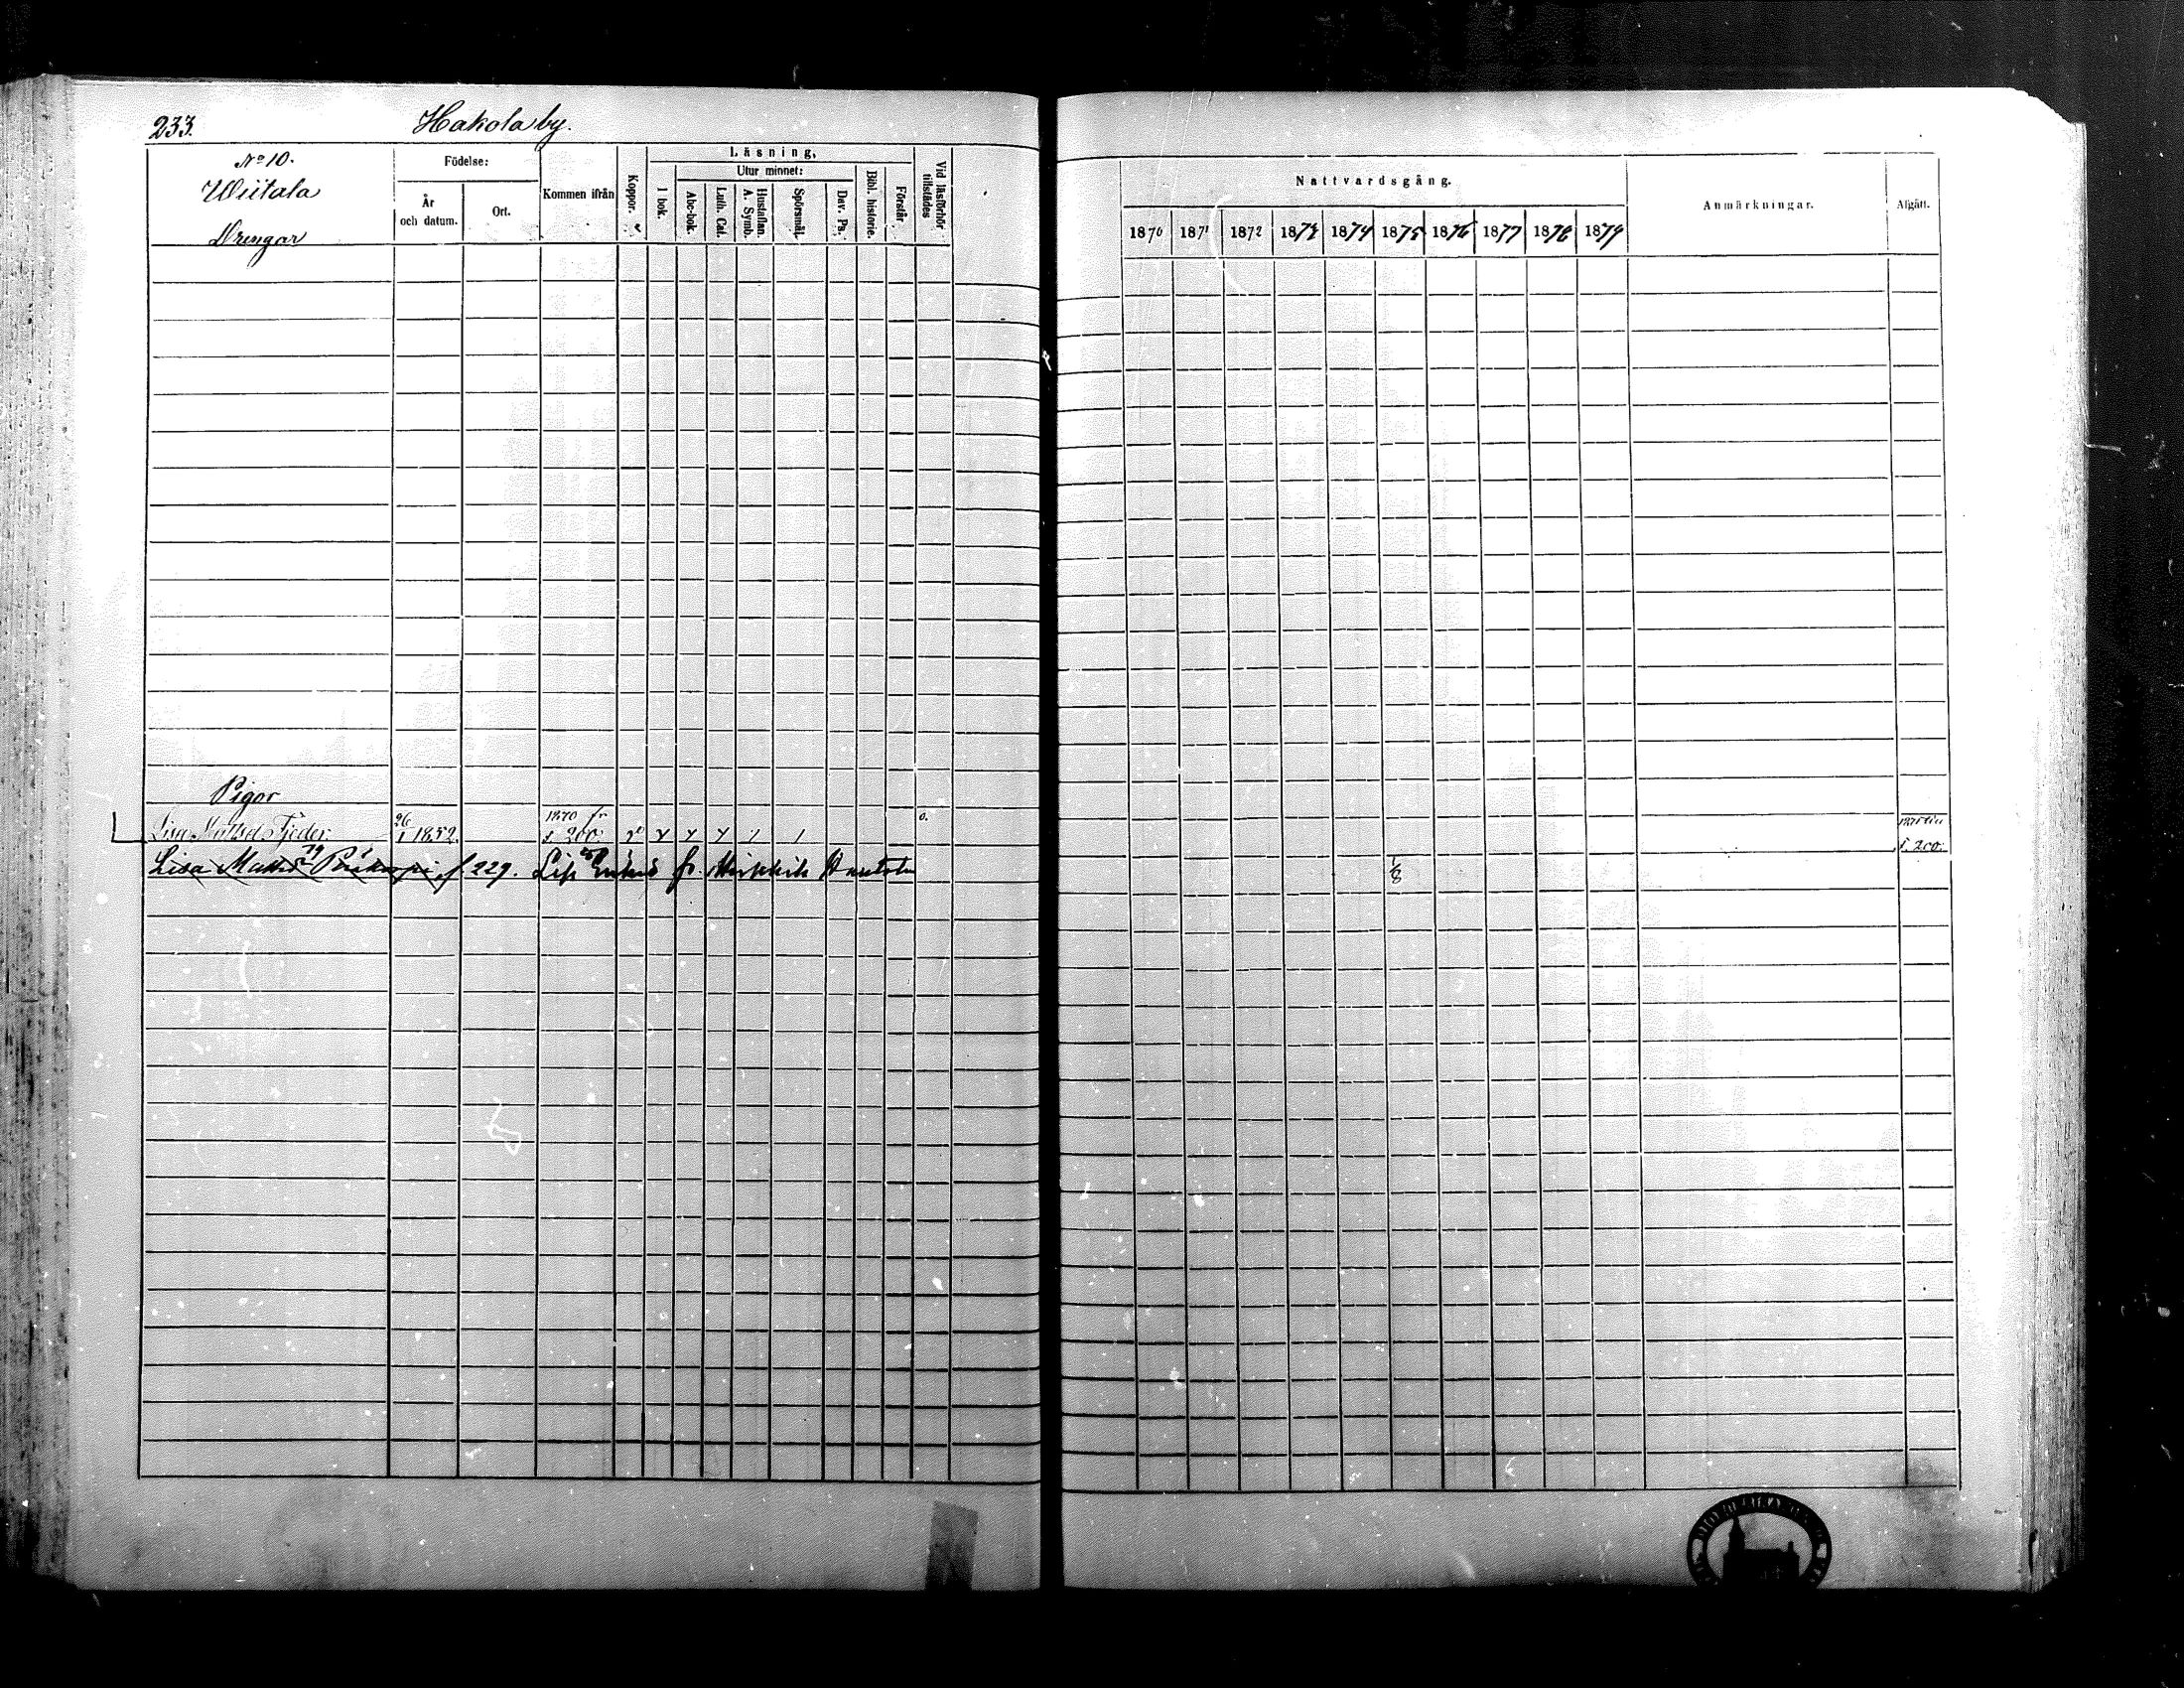 233.
Hakola by.
No 10.
Wiitala
Drengar
Födelse:
År och datum.
Ort.
Kommen ifrån
Koppor.
Läsning,
I bok.
Utur minnet:
Abc-bok.
Luth. Cat.
Hustaflan. A. Symb.
Spörsmål.
Dav. Ps.
Bibl. historie.
Förstår
Vid läsförhör tillstädes
Nattvardsgång.
1870 1871 1872 1873 1874 1875 1876 1877 1878 1879
Anmärkningar.
Afgått.
Pigor
Lisa Mattsd. Fjeder 26/1 1852. 1870 fr f. 200.
f. 200.
Lisa Mattsd f. 229.
1/8